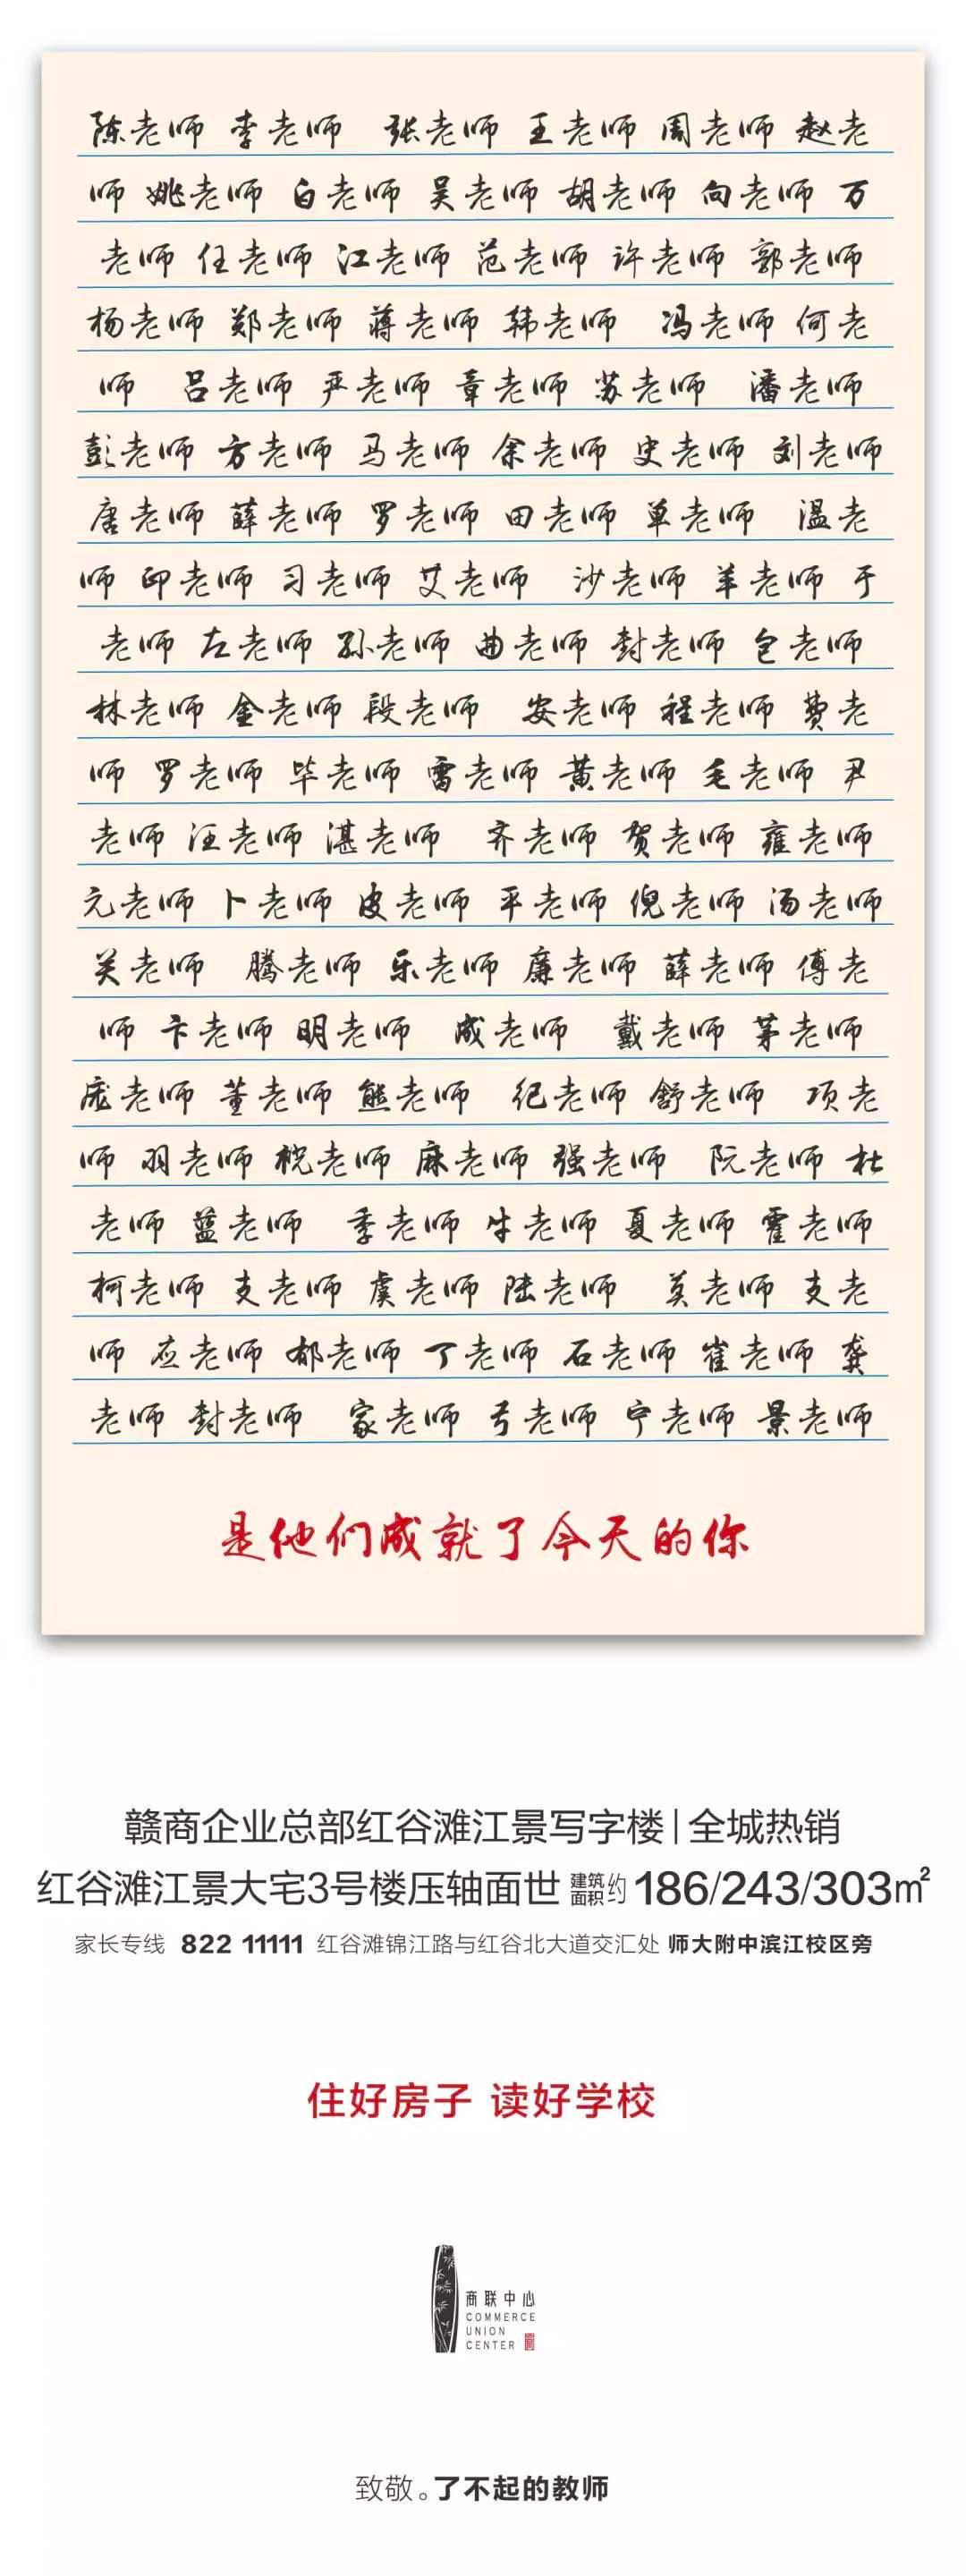 陈老师 李老师 张老师 王老师 周老师 赵老
师 姚老师 白老师 吴老师 胡老师 向老师 万
老师 任老师 江老师 范老师 许老师 郭老师
杨老师 郑老师 蒋老师 韩老师 冯老师 何老
师 吕老师 严老师 章老师 苏老师 潘老师
彭老师 方老师 马老师 余老师 史老师 刘老师
唐老师 薛老师 罗老师 田老师 单老师 温老
师 印老师 习老师 艾老师 沙老师 羊老师 于
老师 左老师 孙老师 曲老师 封老师 包老师
林老师 金老师 段老师 安老师 程老师 费老
师 罗老师 毕老师 雷老师 黄老师 毛老师 尹
老师 汪老师 湛老师 齐老师 贺老师 雍老师
元老师 卜老师 皮老师 平老师 倪老师 汤老师
关老师 腾老师 乐老师 廉老师 薛老师 傅老
师 卞老师 明老师 成老师 戴老师 茅老师
庞老师 董老师 熊老师 纪老师 舒老师 项老
师 羽老师 祝老师 麻老师 强老师 阮老师 杜
老师 蓝老师 季老师 牛老师 夏老师 霍老师
柯老师 支老师 虞老师 陆老师 莫老师 支老
师 应老师 郁老师 丁老师 石老师 崔老师 龚
老师 封老师 家老师 弓老师 宁老师 景老师
是他们成就了今天的你
赣商企业总部红谷滩江景写字楼|全城热销
红谷滩江景大宅3号楼压轴面世 建筑面积约186/243/303㎡
家长专线 822 11111 红谷滩锦江路与红谷北大道交汇处 师大附中滨江校区旁
住好房子 读好学校
商联中心
COMMERCE
UNION
CENTER
致敬。了不起的教师